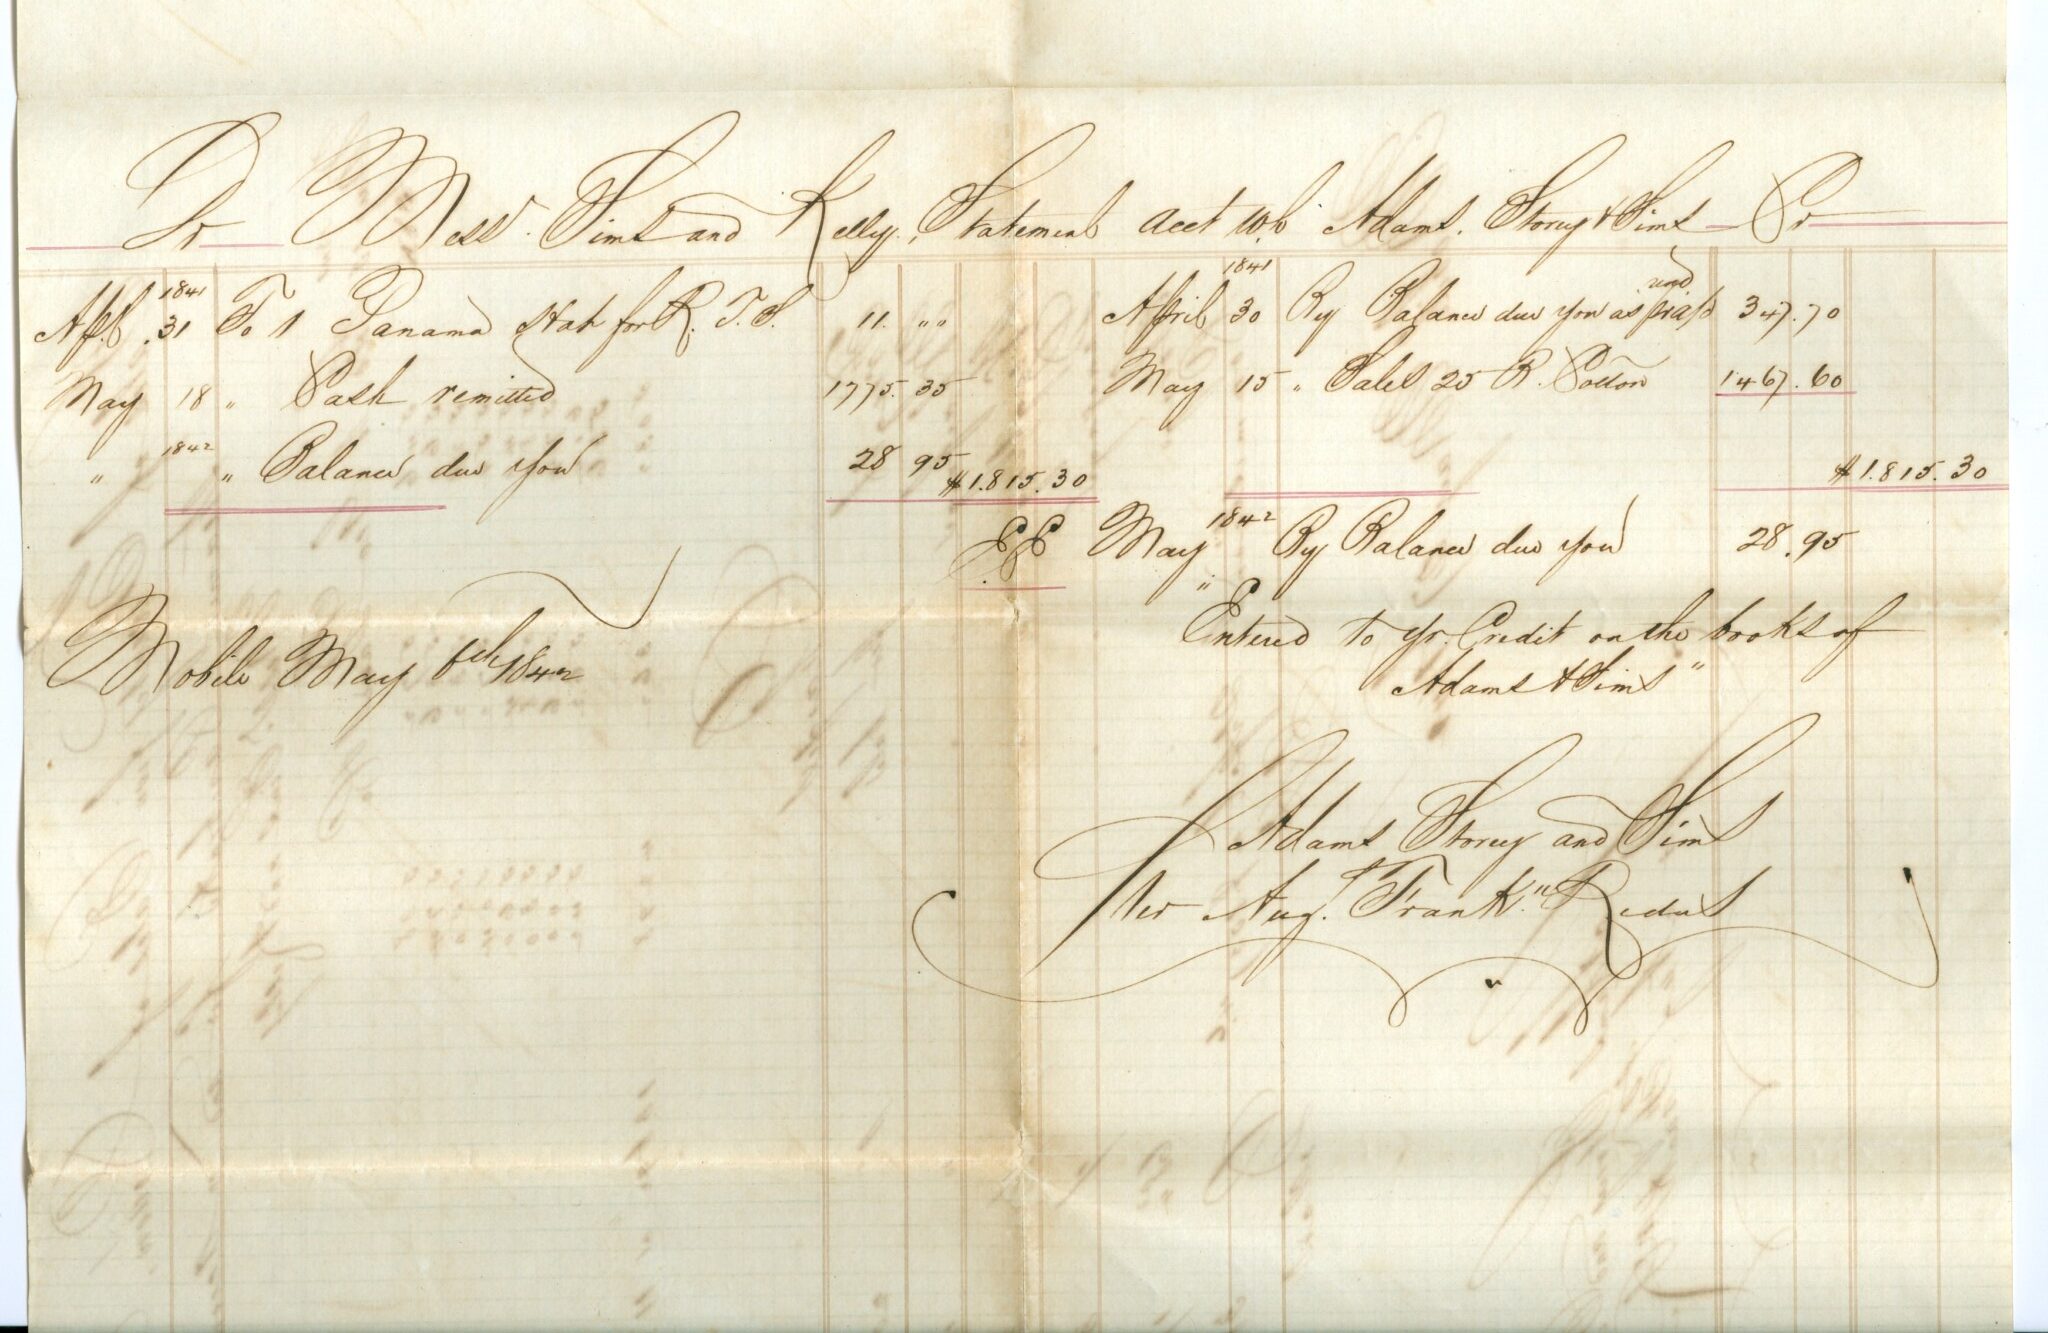 Dr Messrs. Sims and Kelly, Statement Acct with Adams, Storey & Sims Cr
1841
Apl. 31 To 1 Panama Hat for R. T. S. 11. " "
May 18 " Cash remitted 1775.35
" 1842 " Balance due you 28 95 $1.815.30
1841
April 30 By Balance due you as 347.70
May 15 " Sales 25 B. Cotton 1467.60
$1.815.30
E E May 1842 By Balance due you 28.95
"Entered to yr. Credit on the books of
Adams & Sims"
Mobile May 6th 1842
Adams Storey and Sims
Per Aug. Frankn. Redus